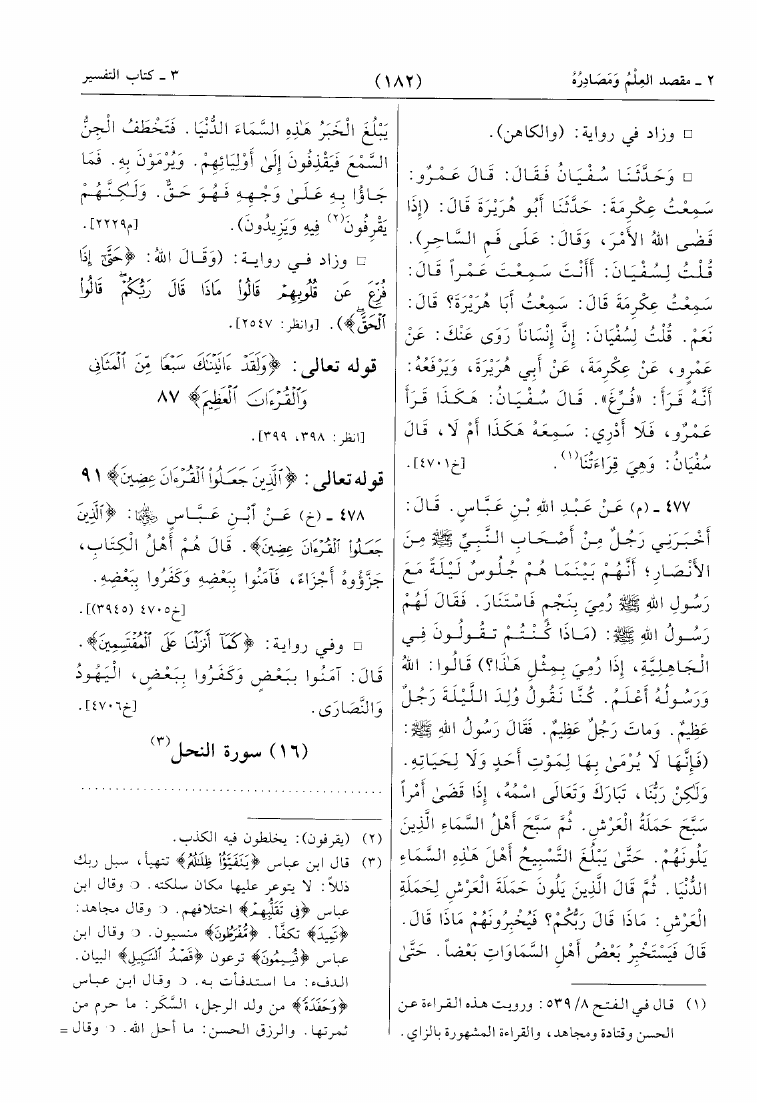 ٢ ـ مقصد العِلْمُ وَمَصَادِرُهُ
(١٨٢)
٣ ـ كتاب التفسير
□ وزاد في رواية: (والكاهن).
□ وَحَدَّثَنَا سُفْيَانُ فَقَالَ: قَالَ عَمْرٌو:
سَمِعْتُ عِكْرِمَةَ: حَدَّثَنَا أَبُو هُرَيْرَةَ قَالَ: (إِذَا
قَضَى اللهُ الأَمْرَ، وَقَالَ: عَلَى فَمِ السَّاحِرِ).
قُلْتُ لِسُفْيَانَ: أَأَنْتَ سَمِعْتَ عَمْراً قَالَ:
سَمِعْتُ عِكْرِمَةَ قَالَ: سَمِعْتُ أَبَا هُرَيْرَةَ؟ قَالَ:
نَعَمْ. قُلْتُ لِسُفْيَانَ: إِنَّ إِنْسَاناً رَوَى عَنْكَ: عَنْ
عَمْرٍو، عَنْ عِكْرِمَةَ، عَنْ أَبِي هُرَيْرَةَ، وَيَرْفَعُهُ:
أَنَّهُ قَرَأَ: «فُرِّغَ». قَالَ سُفْيَانُ: هَكَذَا قَرَأَ
عَمْرٌو، فَلَا أَدْرِي: سَمِعَهُ هَكَذَا أَمْ لَا، قَالَ
سُفْيَانُ: وَهِيَ قِرَاءَتُنَا(١). [خ٤٧٠١].
٤٧٧ ـ (م) عَنْ عَبْدِ اللهِ بْنِ عَبَّاسٍ. قَالَ:
أَخْبَرَنِي رَجُلٌ مِنْ أَصْحَابِ النَّبِيِّ ﷺ مِنَ
الأَنْصَارِ؛ أَنَّهُمْ بَيْنَمَا هُمْ جُلُوسٌ لَيْلَةً مَعَ
رَسُولِ اللهِ ﷺ رُمِيَ بِنَجْمٍ فَاسْتَنَارَ. فَقَالَ لَهُمْ
رَسُولُ اللهِ ﷺ: (مَاذَا كُنْتُمْ تَقُولُونَ فِي
الْجَاهِلِيَّةِ، إِذَا رُمِيَ بِمِثْلِ هَٰذَا؟) قَالُوا: اللهُ
وَرَسُولُهُ أَعْلَمُ. كُنَّا نَقُولُ وُلِدَ اللَّيْلَةَ رَجُلٌ
عَظِيمٌ. وَمَاتَ رَجُلٌ عَظِيمٌ. فَقَالَ رَسُولُ اللهِ ﷺ:
(فَإِنَّهَا لَا يُرْمَىٰ بِهَا لِمَوْتِ أَحَدٍ وَلَا لِحَيَاتِهِ.
وَلَكِنْ رَبُّنَا، تَبَارَكَ وَتَعَالَى اسْمُهُ، إِذَا قَضَىٰ أَمْراً
سَبَّحَ حَمَلَةُ الْعَرْشِ. ثُمَّ سَبَّحَ أَهْلُ السَّمَاءِ الَّذِينَ
يَلُونَهُمْ. حَتَّىٰ يَبْلُغَ التَّسْبِيحُ أَهْلَ هَٰذِهِ السَّمَاءِ
الدُّنْيَا. ثُمَّ قَالَ الَّذِينَ يَلُونَ حَمَلَةَ الْعَرْشِ لِحَمَلَةِ
الْعَرْشِ: مَاذَا قَالَ رَبُّكُمْ؟ فَيُخْبِرُونَهُمْ مَاذَا قَالَ.
قَالَ فَيَسْتَخْبِرُ بَعْضُ أَهْلِ السَّمَاوَاتِ بَعْضاً. حَتَّىٰ
(١) قال في الفتح ٥٣٩/٨: ورويت هذه القراءة عن
الحسن وقتادة ومجاهد، والقراءة المشهورة بالزاي.
يَبْلُغَ الْخَبَرُ هَٰذِهِ السَّمَاءَ الدُّنْيَا. فَتَخْطَفُ الْجِنُّ
السَّمْعَ فَيَقْذِفُونَ إِلَىٰ أَوْلِيَائِهِمْ. وَيُرْمَوْنَ بِهِ. فَمَا
جَاؤُا بِهِ عَلَىٰ وَجْهِهِ فَهُوَ حَقٌّ. وَلَكِنَّهُمْ
يَقْرِفُونَ(٢) فِيهِ وَيَزِيدُونَ). [م٢٢٢٩].
□ وزاد في رواية: (وَقَالَ اللهُ: ﴿حَتَّىٰٓ إِذَا
فُزِّعَ عَن قُلُوبِهِمْ قَالُوا۟ مَاذَا قَالَ رَبُّكُمْۖ قَالُوا۟
ٱلْحَقَّۖ﴾). [وانظر: ٢٥٤٧].
قوله تعالى: ﴿وَلَقَدْ ءَاتَيْنَٰكَ سَبْعًا مِّنَ ٱلْمَثَانِى
وَٱلْقُرْءَانَ ٱلْعَظِيمَ﴾ ٨٧
[انظر: ٣٩٨، ٣٩٩].
قوله تعالى: ﴿ٱلَّذِينَ جَعَلُوا۟ ٱلْقُرْءَانَ عِضِينَ﴾ ٩١
٤٧٨ ـ (خ) عَنْ ٱبْنِ عَبَّاسٍ ﵄: ﴿ٱلَّذِينَ
جَعَلُوا۟ ٱلْقُرْءَانَ عِضِينَ﴾. قَالَ هُمْ أَهْلُ الْكِتَابِ،
جَزَّؤُوهُ أَجْزَاءً، فَآمَنُوا بِبَعْضِهِ وَكَفَرُوا بِبَعْضِهِ.
[خ٤٧٠٥ (٣٩٤٥)].
□ وفي رواية: ﴿كَمَآ أَنزَلْنَا عَلَى ٱلْمُقْتَسِمِينَ﴾.
قَالَ: آمَنُوا بِبَعْضٍ وَكَفَرُوا بِبَعْضٍ، الْيَهُودُ
وَالنَّصَارَى. [خ٤٧٠٦].
(١٦) سورة النحل(٣)
(٢) (يقرفون): يخلطون فيه الكذب.
(٣) قال ابن عباس ﴿يَنَفَيَّؤُا۟ ظِلَٰلُهُۥ﴾ تتهيأ، سبل ربك
ذللاً: لا يتوعر عليها مكان سلكته. ○ وقال ابن
عباس ﴿فِى تَقَلُّبِهِمْ﴾ اختلافهم. ○ وقال مجاهد:
﴿تَمِيدَ﴾ تكفأ. ﴿مُّفْرَطُونَ﴾ منسيون. ○ وقال ابن
عباس ﴿تُسِيمُونَ﴾ ترعون ﴿قَصْدُ ٱلسَّبِيلِ﴾ البيان.
الدفء: ما استدفأت به. ○ وقال ابن عباس
﴿وَحَفَدَةً﴾ من ولد الرجل، السَّكَر: ما حرم من
ثمرتها. والرزق الحسن: ما أحل الله. ○ وقال =